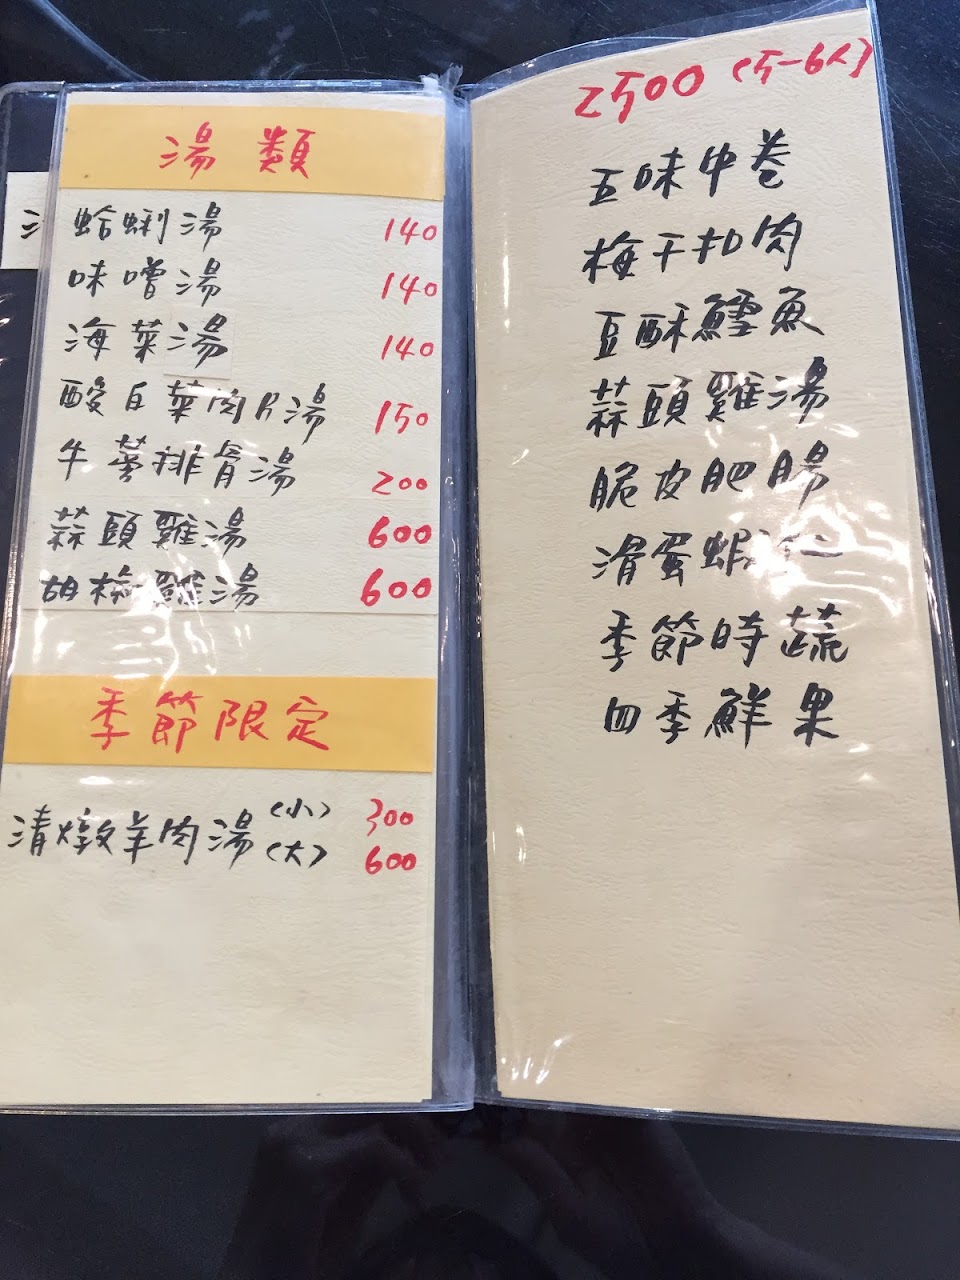 湯類
蛤蜊湯 140
味噌湯 140
海菜湯 140
酸白菜肉片湯 150
牛蒡排骨湯 200
蒜頭雞湯 600
胡椒雞湯 600
季節限定
清燉羊肉湯 (小) 300
(大) 600
2500 (5-6人)
五味中卷
梅干扣肉
豆酥鱈魚
蒜頭雞湯
脆皮肥腸
滑蛋蝦仁
季節時蔬
四季鮮果